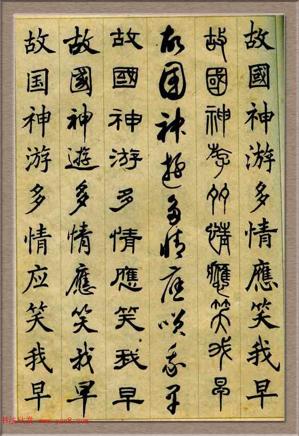 故國神游多情應笑我早
故國神游多情應笑我早
故国神遊多情應笑我早
故國神游多情應笑我早
故國神遊多情應笑我早
故国神游多情应笑我早